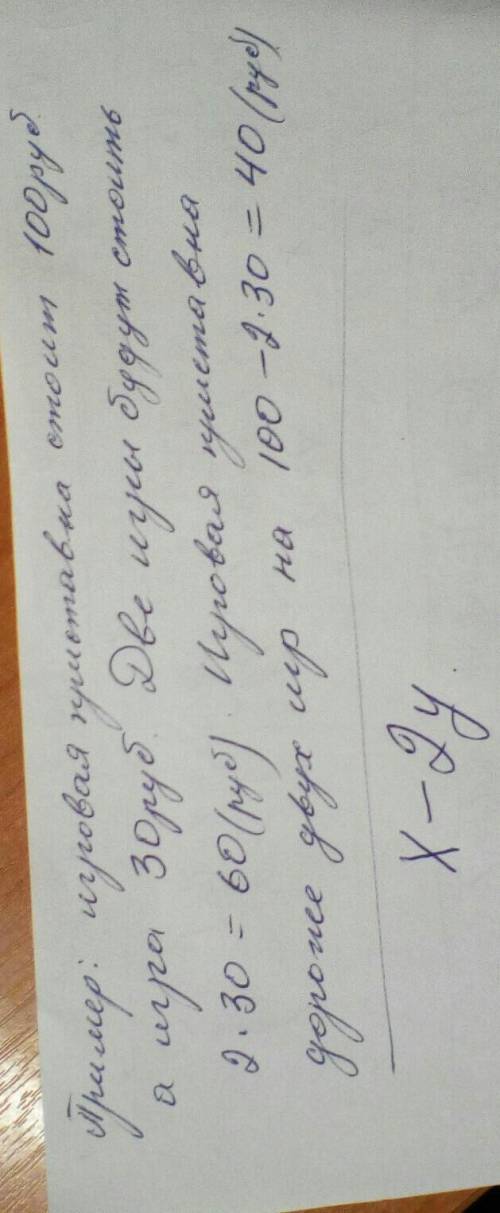 Пример: игровая приставка стоит 100руб.
а игра 30руб. Две игры будут стоить
2·30=60(руб). Игровая приставка
дороже двух игр на 100-2·30=40(руб)
x-2y.